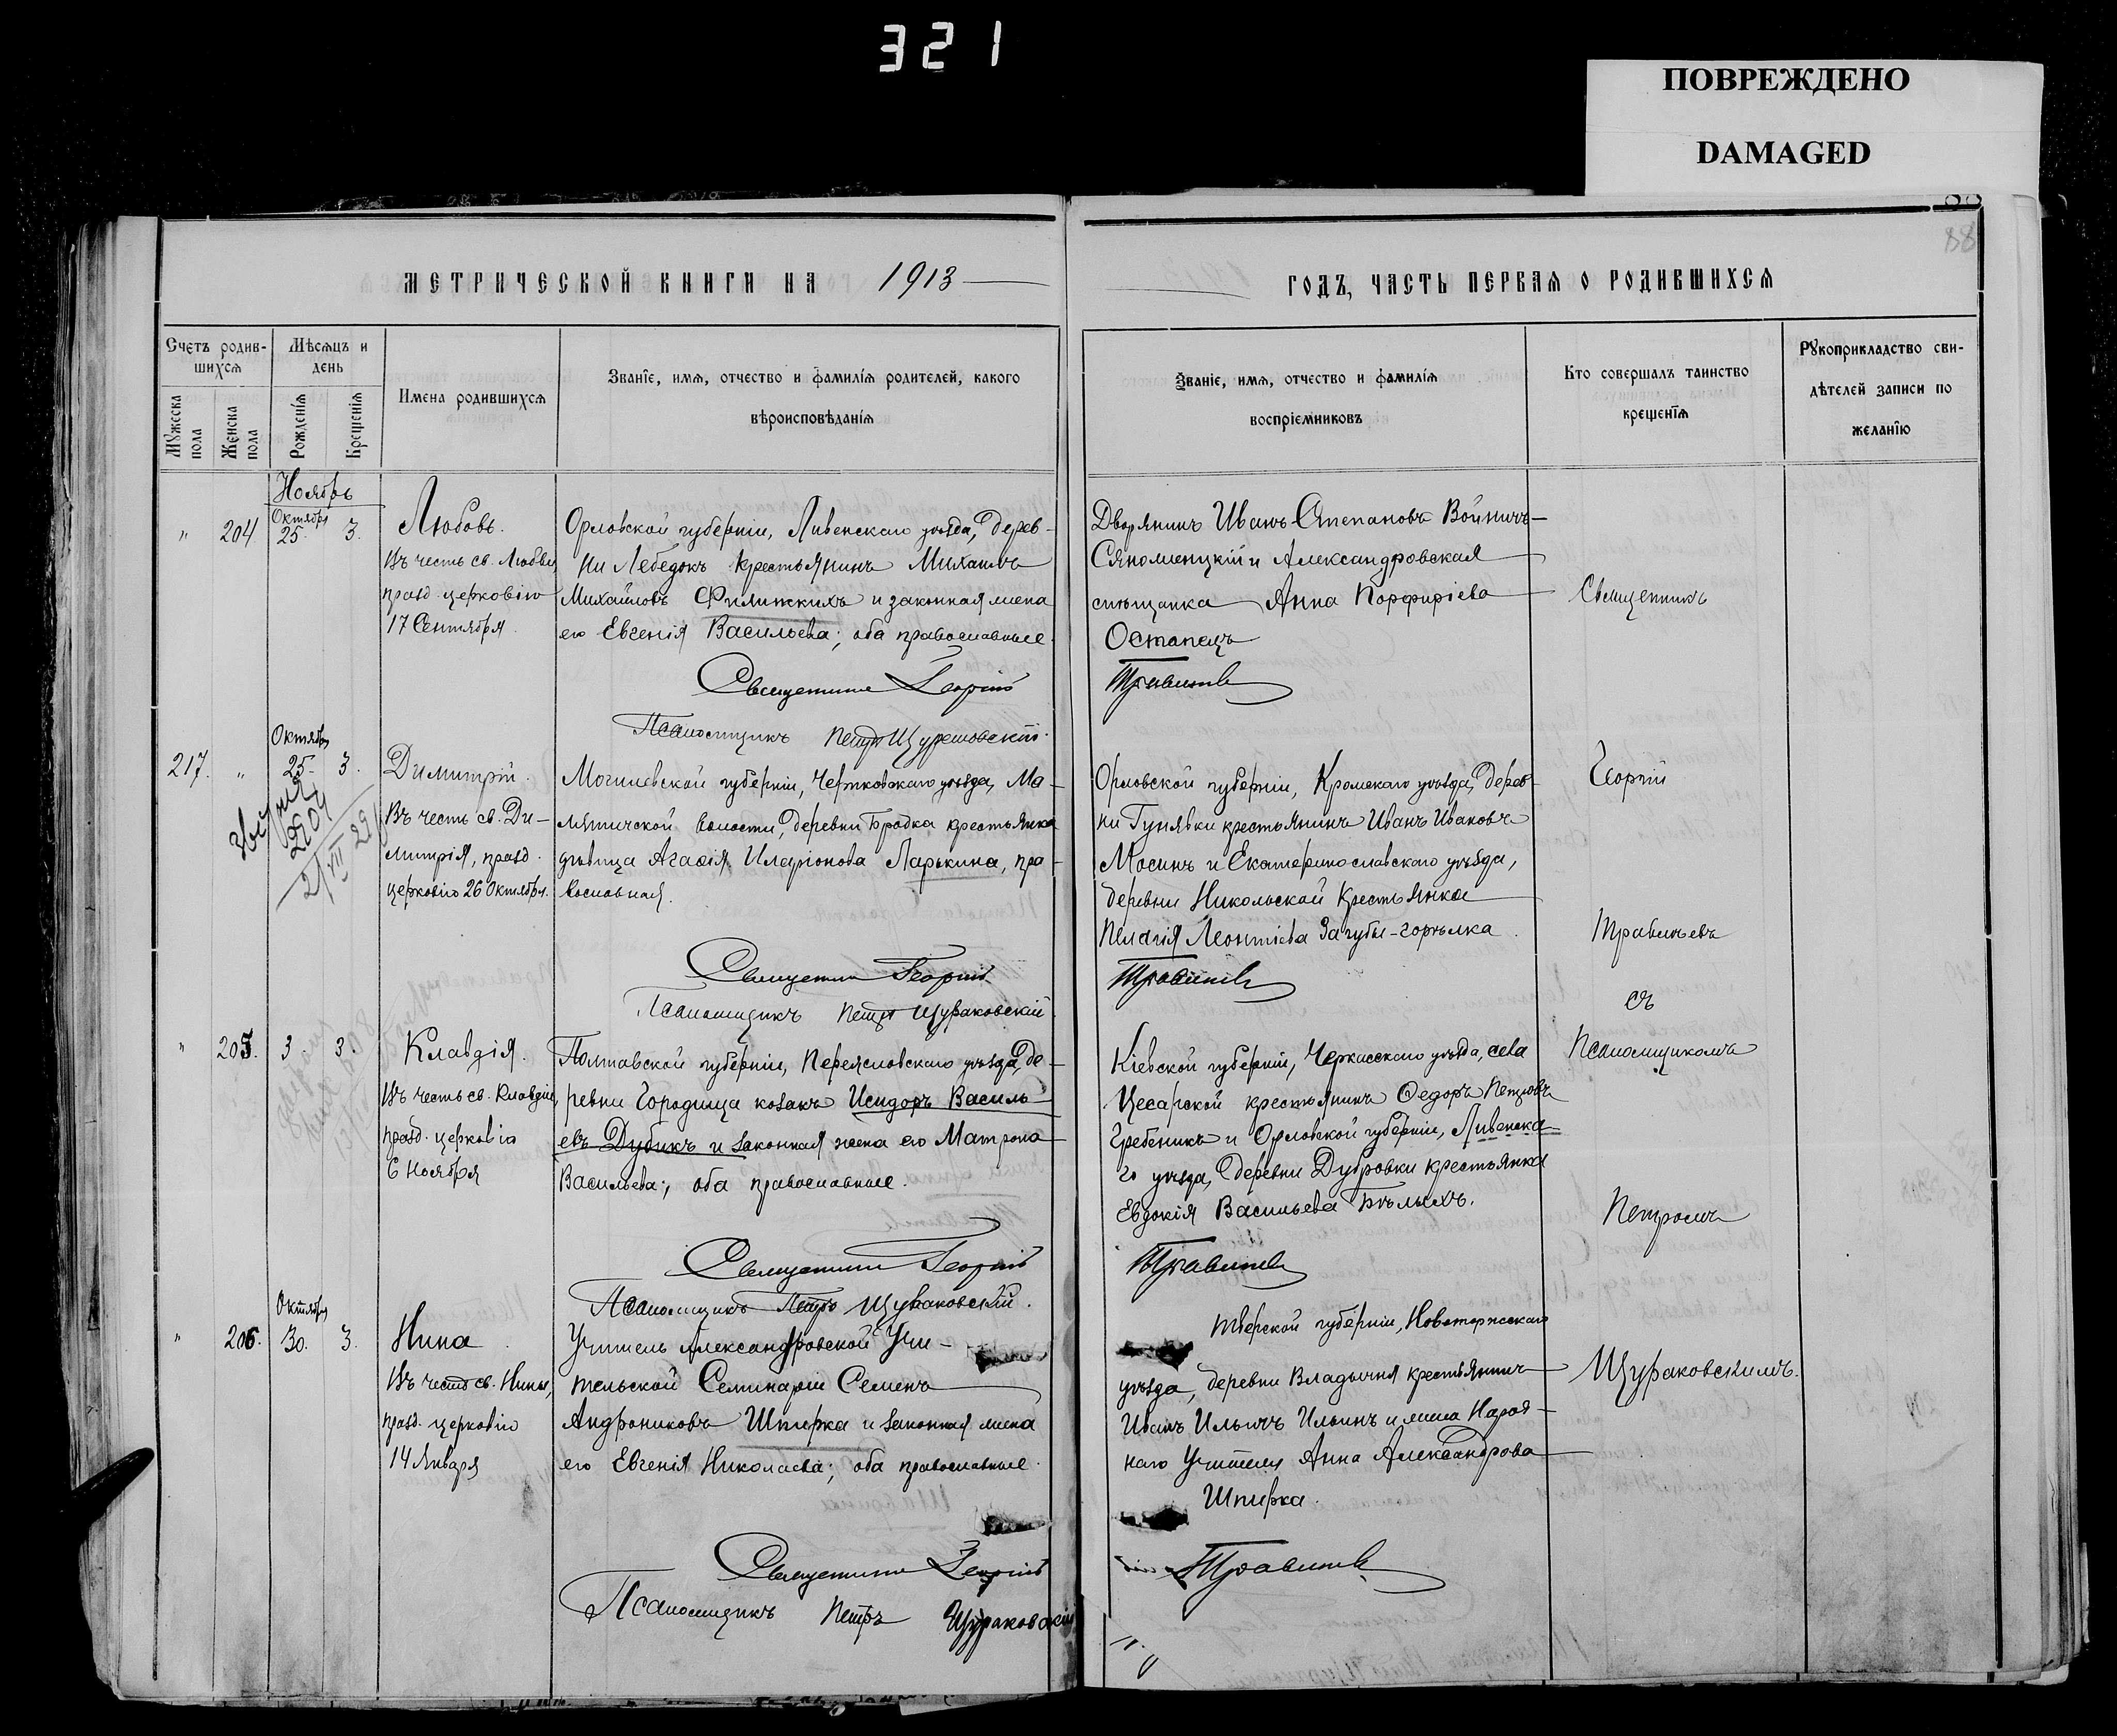 321
ПОВРЕЖДЕНО
DAMAGED
88
МЕТРИЧЕСКОЙ КНИГИ НА 1913
ГОДЪ, ЧАСТЬ ПЕРВАЯ О РОДИВШИХСЯ
Счетъ родив-
шихся
Мужеска
пола
Женска
пола
Мѣсяцъ и
день
Рожденія
Крещенія
Имена родившихся
Званіе, имя, отчество и фамилія родителей, какого
вѣроисповѣданія
Званіе, имя, отчество и фамилія
воспріемниковъ
Кто совершалъ таинство
крещенія
Рукоприкладство сви-
дѣтелей записи по
желанію
Ноябрь
" 204. Октября 25. 3.
Любовь.
Въ честь св. Любви,
празд. церковію
17 Сентября.
Орловской губерніи, Ливенскаго уѣзда, дерев-
ни Лебедокъ крестьянинъ Михаилъ
Михайловъ Филипскихъ и законная жена
его Евгенія Васильева; оба православные.
Священникъ Георгій
Псаломщикъ Петръ Щураковскій.
Дворянинъ Иванъ Степановъ Войничъ-
Сяноженцкій и Александровская
мѣщанка Анна Порфиріева
Остапецъ
Травиневъ
217. " Октября 25. 3.
2204
2/VII 29
Димитрій.
Въ честь св. Ди-
митрія, празд.
церковію 26 Октября.
Могилевской губерніи, Чериковскаго уѣзда, Ма-
лятичской волости, деревни Бродка крестьянка
дѣвица Агафія Иларіонова Ларькина, пра-
вославная.
Священникъ Георгій
Псаломщикъ Петръ Щураковскій
Орловской губерніи, Кромскаго уѣзда, дерев-
ни Гунявки крестьянинъ Иванъ Ивановъ
Мосинъ и Екатеринославскаго уѣзда,
деревни Никольской крестьянка
Пелагія Леонтіева Загубы-горѣлка.
Травиневъ
" 205. 3. 3.
Клавдія.
Въ честь св. Клавдіи,
празд. церковію
6 Ноября
Полтавской губерніи, Переяславскаго уѣзда, де-
ревни Городища козакъ Исидоръ Василь-
евъ Дубикъ и законная жена его Матрона
Васильева; оба православные.
Священникъ Георгій
Псаломщикъ Петръ Щураковскій.
Кіевской губерніи, Черкасскаго уѣзда, села
Цесарской крестьянинъ Федоръ Петровъ
Гребеникъ и Орловской губерніи, Ливенска-
го уѣзда, деревни Дубровки крестьянка
Евдокія Васильева Бѣлыхъ.
Травиневъ
" 206. Октября 30. 3.
Нина.
Въ честь св. Нины,
празд. церковію
14 Января
Учитель Александровской Учи-
тельской Семинаріи Семенъ
Андрониковъ Шпирка и законная жена
его Евгенія Николаева; оба православные.
Священникъ Георгій
Псаломщикъ Петръ Щураковскій
Тверской губерніи, Новоторжскаго
уѣзда, деревни Владычня крестьянинъ
Иванъ Ильичъ Ильинъ и жена Народ-
наго Учителя Анна Александрова
Шпирка.
Травиневъ
Священникъ
Георгій
Травиневъ
съ
Псаломщикомъ
Петромъ
Щураковскимъ.